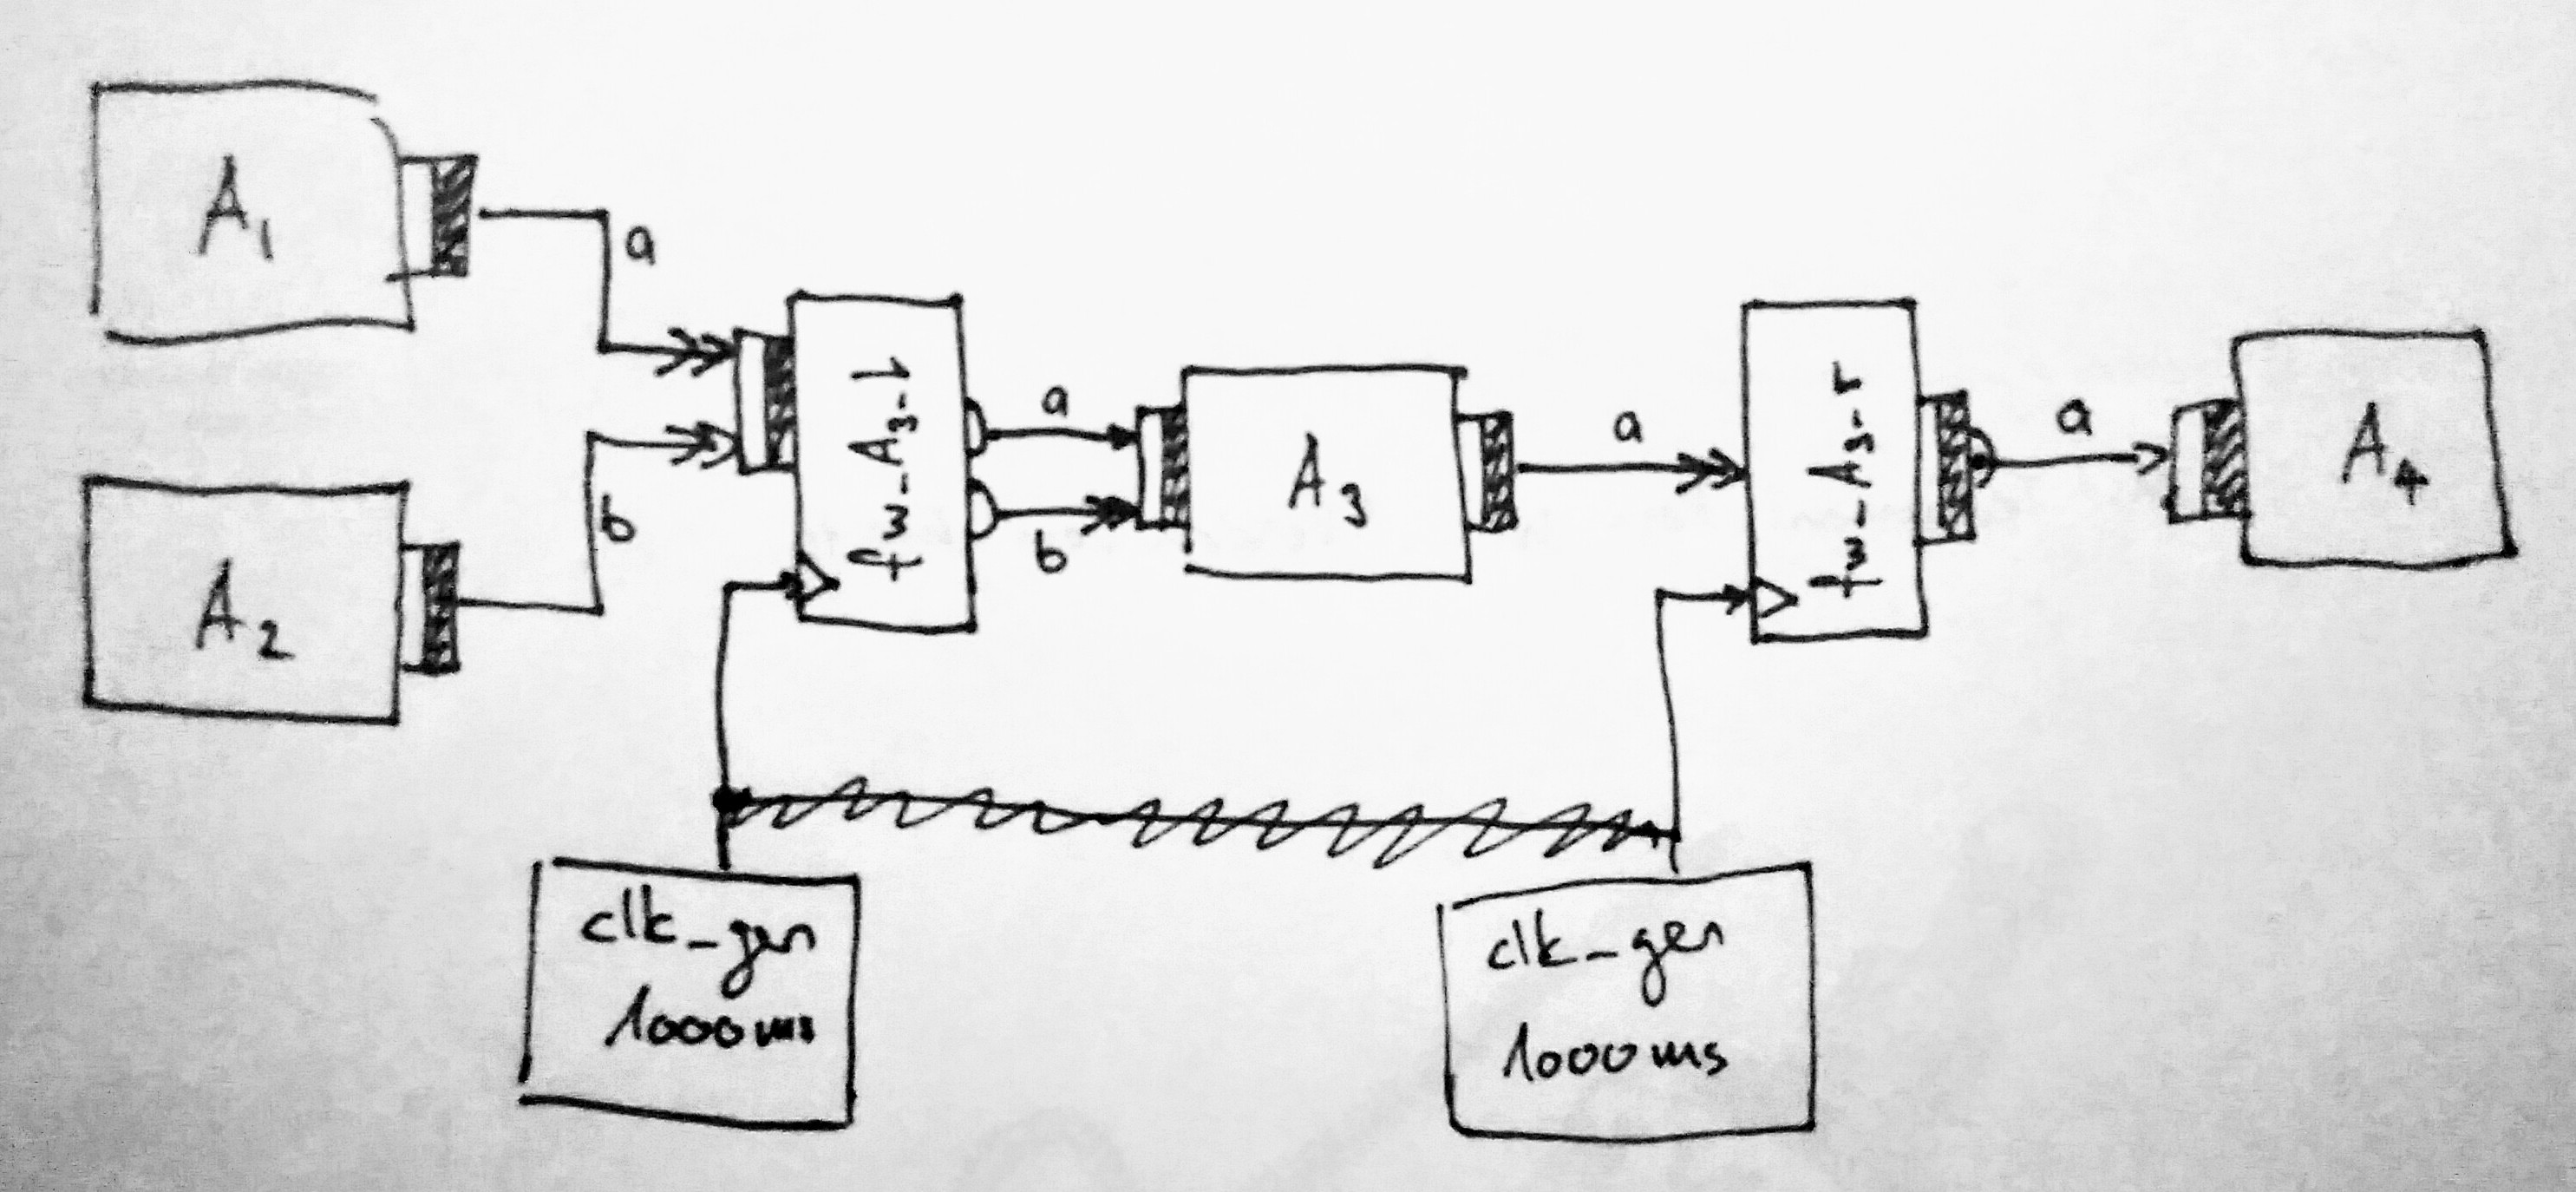 A1
a
A2
b
fw_A3_l
a
b
A3
a
fw_A3_r
a
A4
clk_gen
1000ms
clk_gen
1000ms